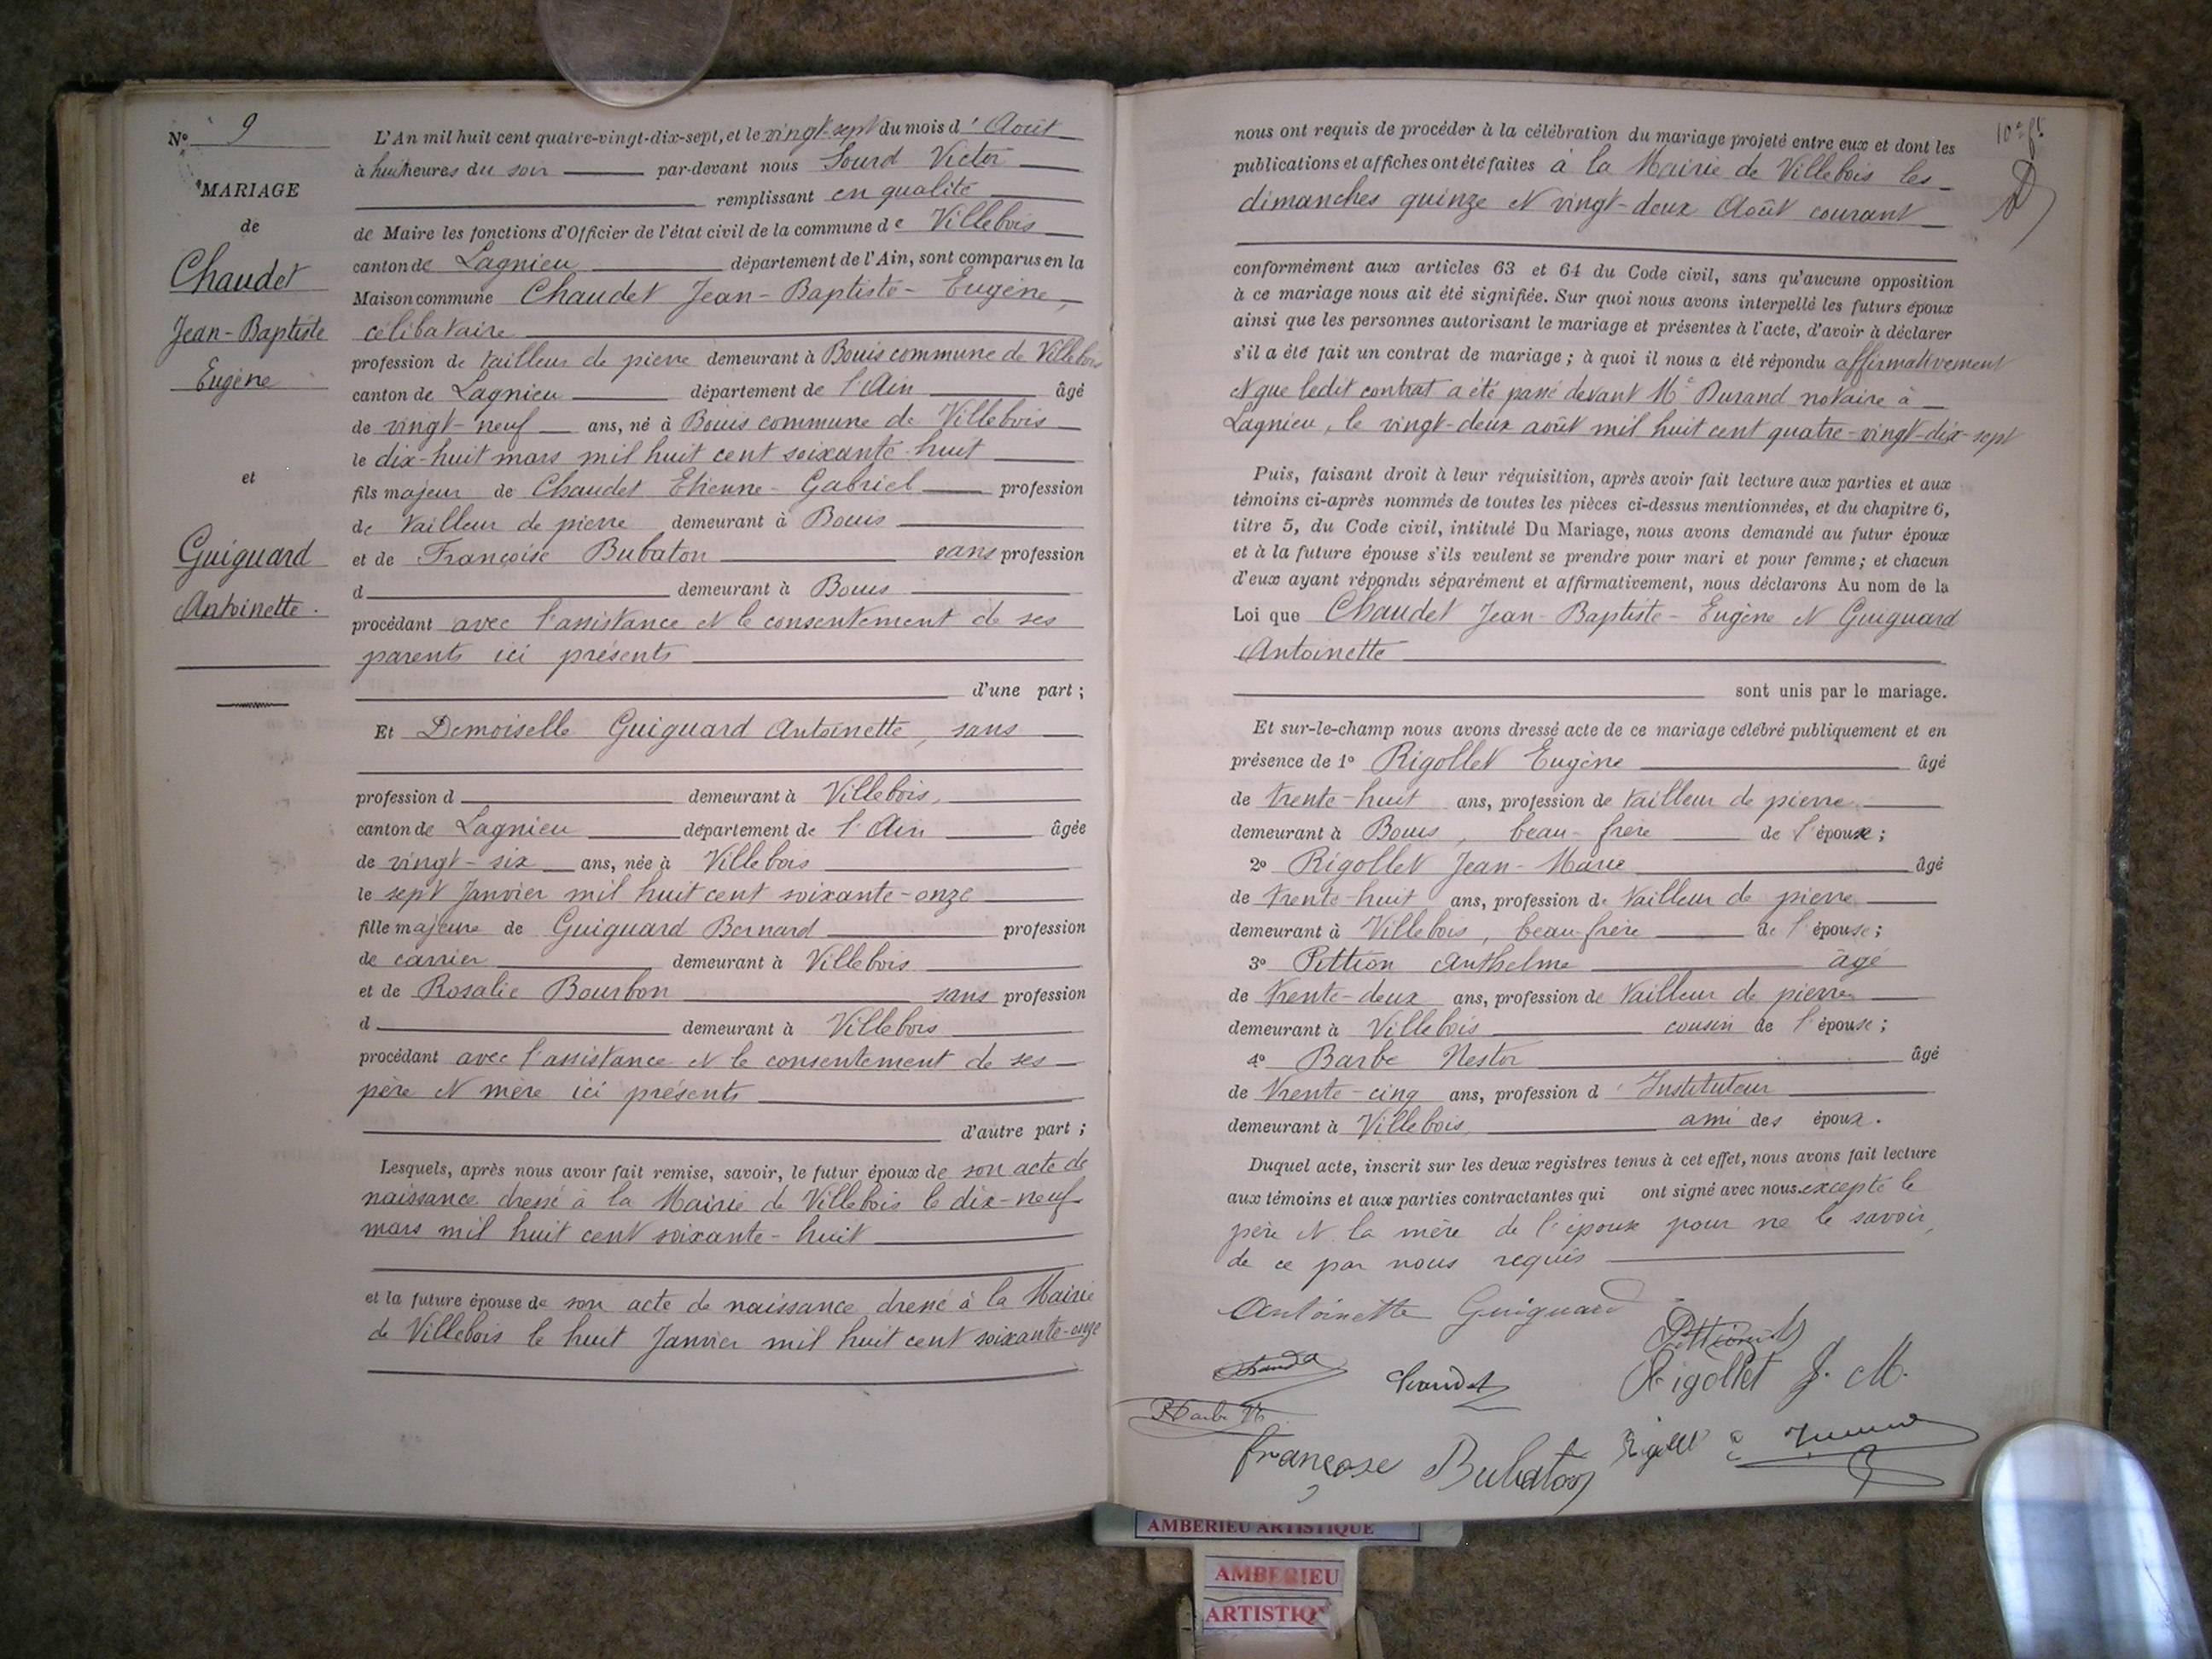 N° 9
MARIAGE
de
Chaudet
Jean-Baptiste
Eugène
et
Guiguard
Antoinette.
L'An mil huit cent quatre-vingt-dix-sept, et le vingt-sept du mois d'Août
à huit heures du soir par-devant nous Sourd Victor
remplissant en qualité
de Maire les fonctions d'Officier de l'état civil de la commune de Villebois
canton de Lagnieu département de l'Ain, sont comparus en la
Maison commune Chaudet Jean-Baptiste-Eugène,
célibataire
profession de tailleur de pierre demeurant à Bouis commune de Villebois
canton de Lagnieu département de l'Ain âgé
de vingt-neuf ans, né à Bouis commune de Villebois
le dix-huit mars mil huit cent soixante-huit
fils majeur de Chaudet Etienne-Gabriel profession
de tailleur de pierre demeurant à Bouis
et de Françoise Bubaton sans profession
d demeurant à Bouis
procédant avec l'assistance et le consentement de ses
parents ici présents
d'une part ;
Et Demoiselle Guiguard Antoinette, sans
profession d demeurant à Villebois,
canton de Lagnieu département de l'Ain âgée
de vingt-six ans, née à Villebois
le sept Janvier mil huit cent soixante-onze
fille majeure de Guiguard Bernard profession
de carrier demeurant à Villebois
et de Rosalie Bourbon sans profession
d demeurant à Villebois
procédant avec l'assistance et le consentement de ses
père et mère ici présents
d'autre part ;
Lesquels, après nous avoir fait remise, savoir, le futur époux de son acte de
naissance dressé à la Mairie de Villebois le dix-neuf
mars mil huit cent soixante-huit
et la future épouse de son acte de naissance dressé à la Mairie
de Villebois le huit Janvier mil huit cent soixante-onze
nous ont requis de procéder à la célébration du mariage projeté entre eux et dont les
publications et affiches ont été faites à la Mairie de Villebois les
dimanches quinze et vingt-deux Août courant
conformément aux articles 63 et 64 du Code civil, sans qu'aucune opposition
à ce mariage nous ait été signifiée. Sur quoi nous avons interpellé les futurs époux
ainsi que les personnes autorisant le mariage et présentes à l'acte, d'avoir à déclarer
s'il a été fait un contrat de mariage ; à quoi il nous a été répondu affirmativement
et que ledit contrat a été passé devant Me Durand notaire à
Lagnieu, le vingt-deux août mil huit cent quatre-vingt-dix-sept
Puis, faisant droit à leur réquisition, après avoir fait lecture aux parties et aux
témoins ci-après nommés de toutes les pièces ci-dessus mentionnées, et du chapitre 6,
titre 5, du Code civil, intitulé Du Mariage, nous avons demandé au futur époux
et à la future épouse s'ils veulent se prendre pour mari et pour femme ; et chacun
d'eux ayant répondu séparément et affirmativement, nous déclarons Au nom de la
Loi que Chaudet Jean-Baptiste-Eugène et Guiguard
Antoinette
sont unis par le mariage.
Et sur-le-champ nous avons dressé acte de ce mariage célébré publiquement et en
présence de 1° Rigollet Eugène âgé
de trente-huit ans, profession de tailleur de pierre
demeurant à Bouis, beau-frère de l'épouse ;
2° Rigollet Jean-Marie âgé
de trente-huit ans, profession de tailleur de pierre
demeurant à Villebois, beau-frère de l'épouse ;
3° Pittion Anthelme âgé
de trente-deux ans, profession de tailleur de pierre
demeurant à Villebois cousin de l'épouse ;
4° Barbe Nestor âgé
de trente-cinq ans, profession d'Instituteur
demeurant à Villebois, ami des époux.
Duquel acte, inscrit sur les deux registres tenus à cet effet, nous avons fait lecture
aux témoins et aux parties contractantes qui ont signé avec nous excepté le
père et la mère de l'époux pour ne le savoir,
de ce par nous requis
Antoinette Guiguard
Pittion
Chaudet
Rigollet J. M.
Barbe N.
françoise Bubaton
Rigollet E
AMBERIEU ARTISTIQUE
AMBERIEU
ARTISTIQ